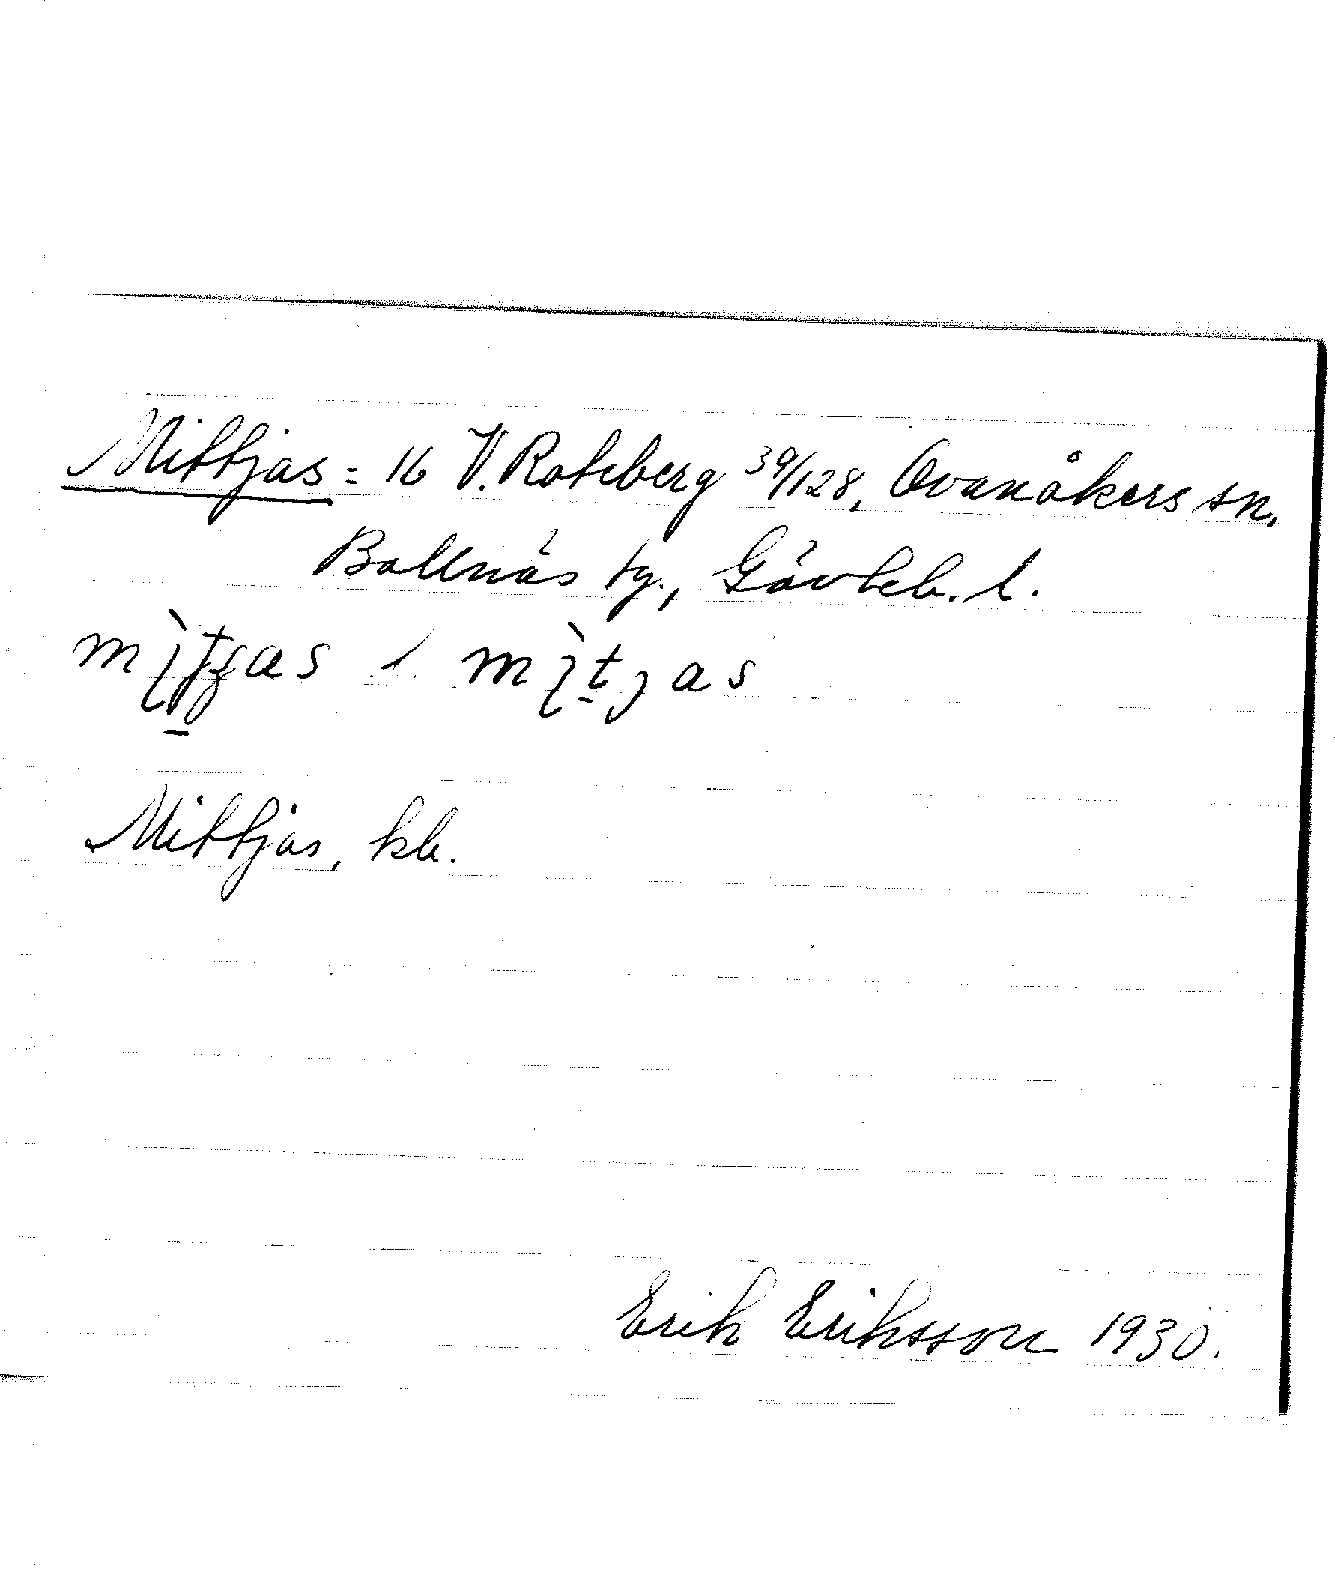 Mittjas = 16 V. Roteberg 39/128, Ovanåkers sn,
Bollnäs tg., Gävleb. l.
Mittjas, kb.
Erik Eriksson 1930.